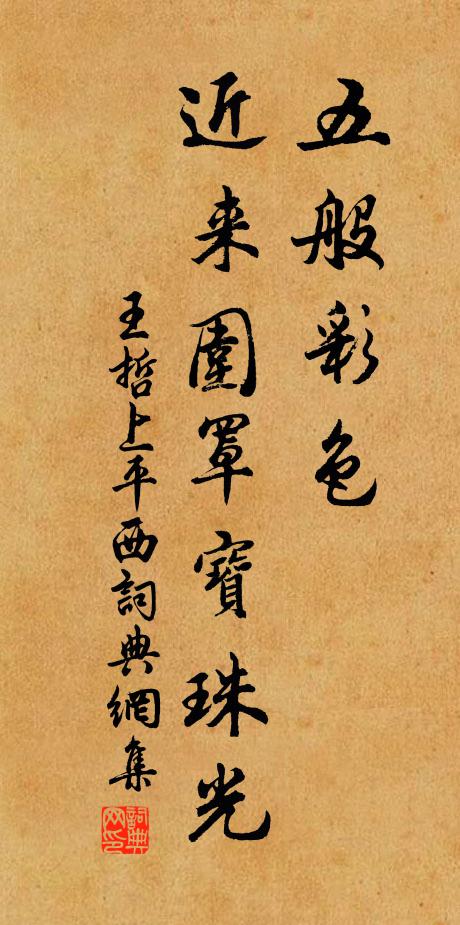 五般彩色
近来圍罩寶珠光
王哲上平西詞典網集
詞典網印